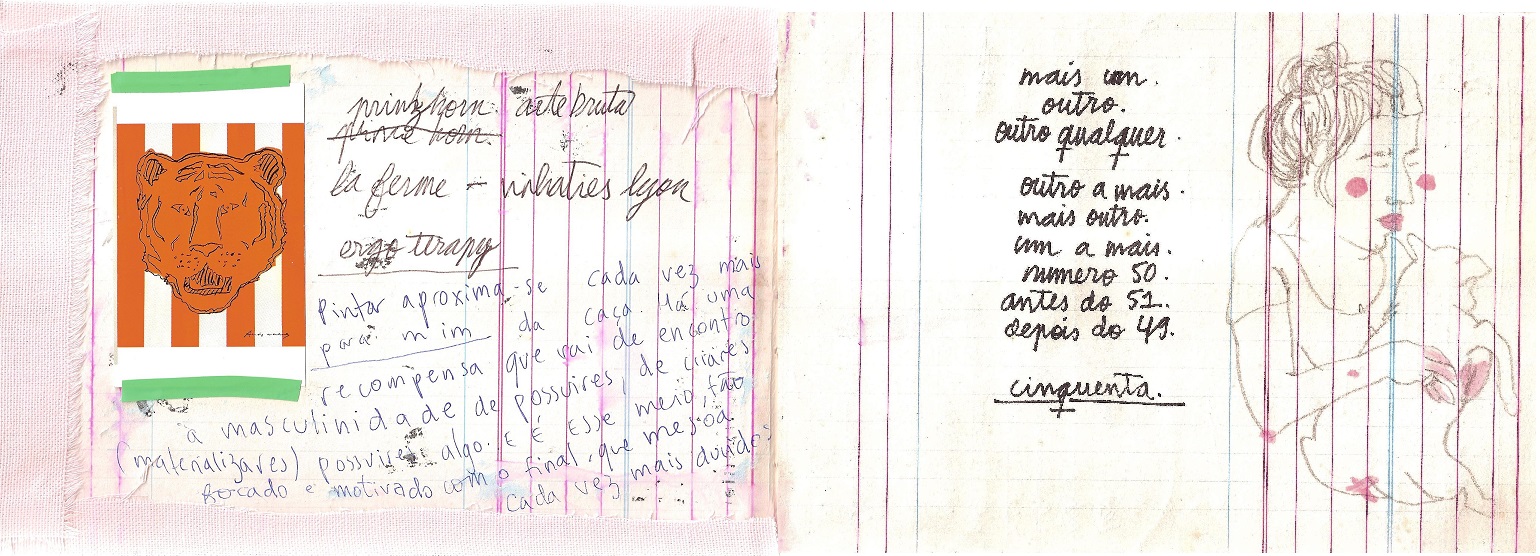 prinzhorn. arte bruta
prince horn.
la ferme – vinhaties lyon
ergo terapy
Pintar aproxima-se cada vez mais
para mim da caça. Há uma
recompensa que vai de encontro
à masculinidade de possuires, de criares
(materializares) possuires algo. E É ESSE meio, tão
focado e motivado com o final, que
cada vez mais
mais um.
outro.
outro qualquer.
outro a mais.
mais outro.
um a mais.
numero 50.
antes do 51.
depois do 49.
cinquenta.